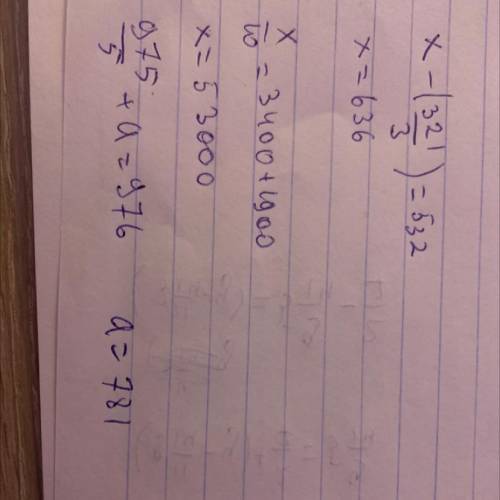 x - (321/3) = 532
x = 636
x/10 = 3400 + 1900
x = 53000
975/5 + a = 976 a = 781